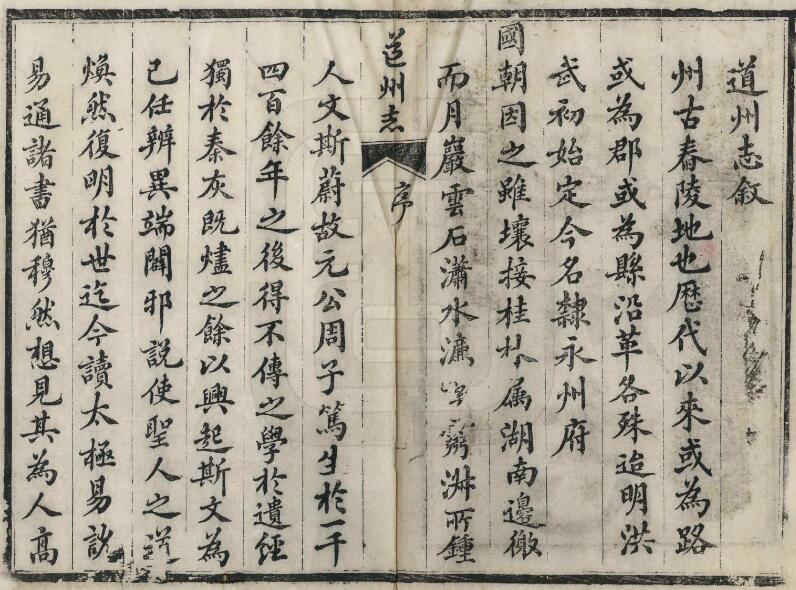 道州志敘
州古舂陵地也歷代以來或為路
或為郡或為縣沿革各殊迨明洪
武初始定今名隸永州府
國朝因之雖壤接桂林属湖南邊徼
而月巖雲石瀟水濂淑所鍾
道州志
序
人文斯蔚故元公周子篤生於一千
四百餘年之後得不傳之學於遺經
獨於秦灰既燼之餘以興起斯文為
己任辨異端闢邪說使聖人之道
煥然復明於世迄今讀太極易說
易通諸書猶穆然想見其為人高